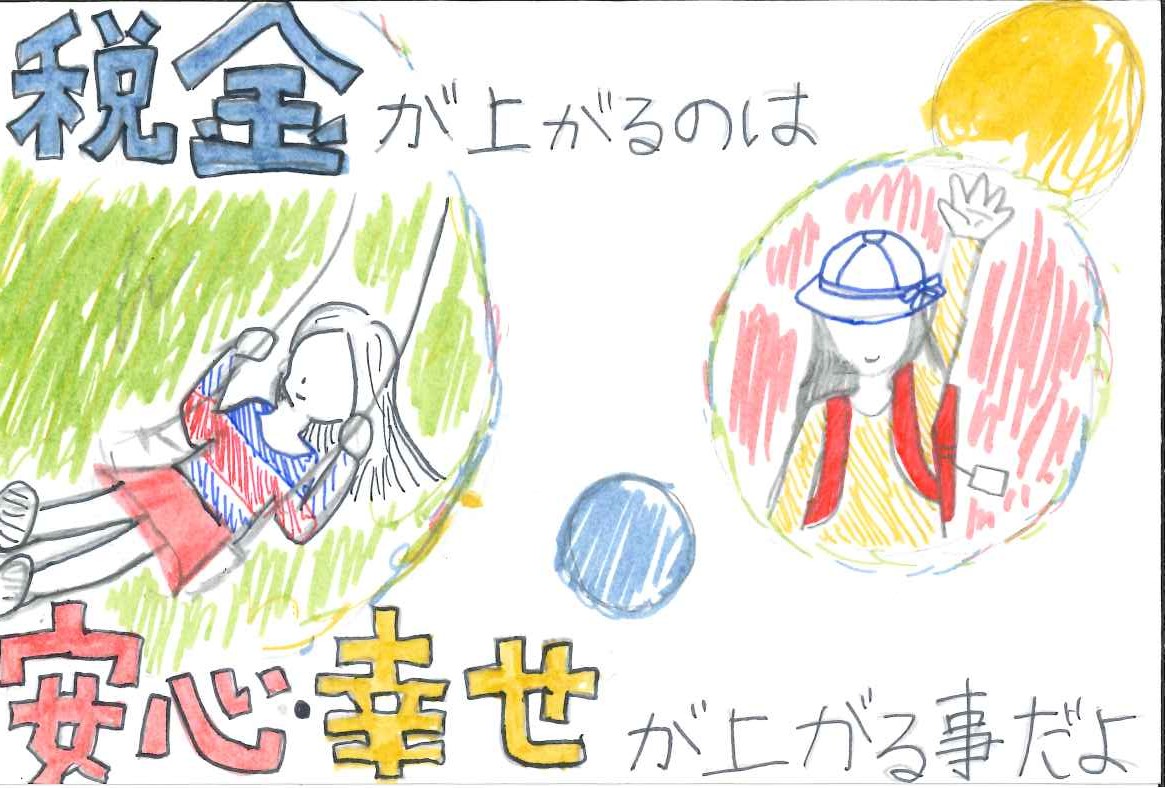 税金が上がるのは
安心・幸せが上がる事だよ